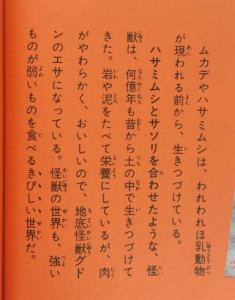 ムカデやハサミムシは、われわれほ乳動物
が現われる前から、生きつづけている。
ハサミムシとサソリを合わせたような、怪
獣は、何億年も昔から土の中で生きつづけて
きた。岩や泥をたべて栄養にしているが、肉
がやわらかく、おいしいので、地底怪獣グド
ンのエサになっている。怪獣の世界も、強い
ものが弱いものを食べるきびしい世界だ。